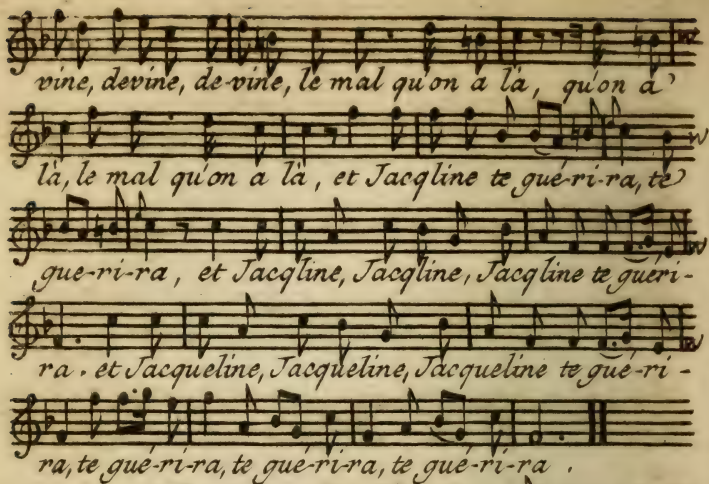 vine, devine, de-vine, le mal qu'on a là, qu'on a
là, le mal qu'on a là, et Jacqline te gué-ri-ra, te
gue-ri-ra, et Jacqline, Jacqline, Jacqline te guéri-
ra. et Jacqueline, Jacqueline, Jacqueline te gué-ri-
ra, te gué-ri-ra, te gué-ri-ra, te gué-ri-ra.